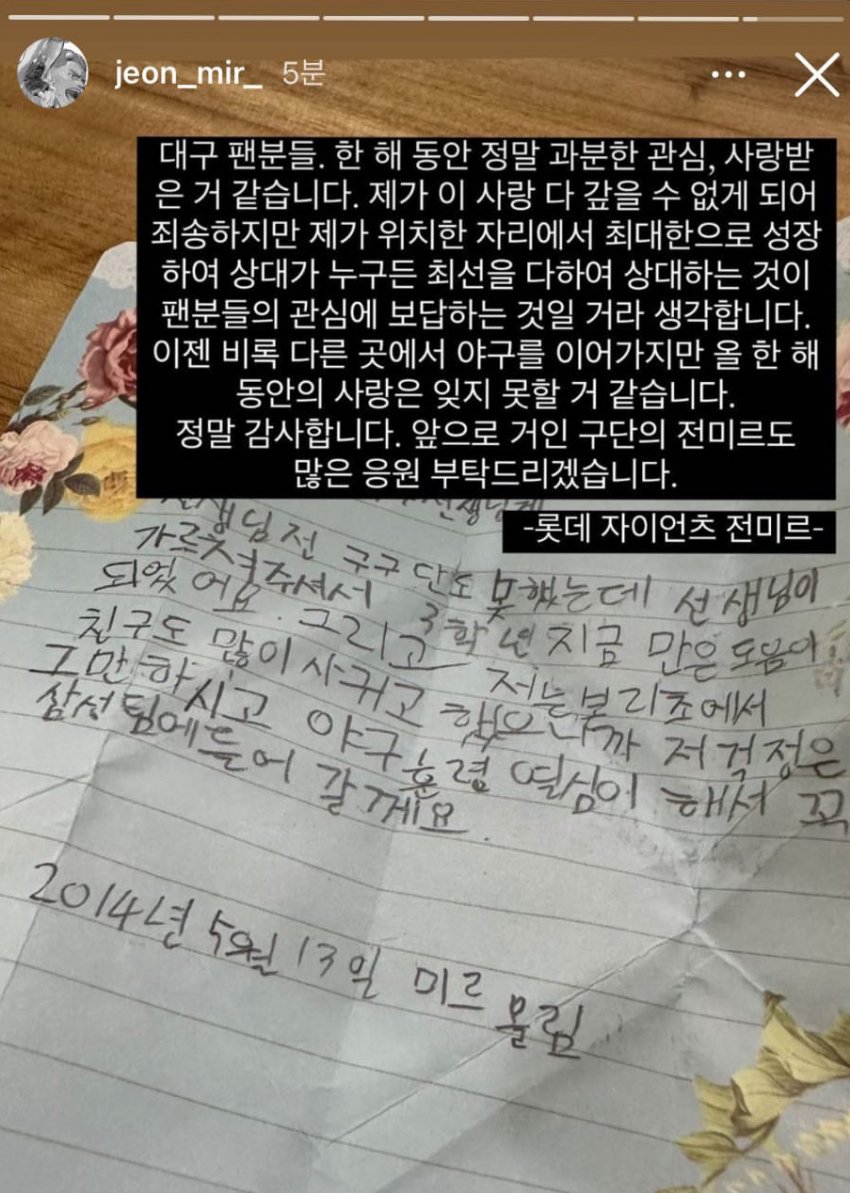 jeon_mir_ 5분
대구 팬분들. 한 해 동안 정말 과분한 관심, 사랑받
은 거 같습니다. 제가 이 사랑 다 갚을 수 없게 되어
죄송하지만 제가 위치한 자리에서 최대한으로 성장
하여 상대가 누구든 최선을 다하여 상대하는 것이
팬분들의 관심에 보답하는 것일 거라 생각합니다.
이젠 비록 다른 곳에서 야구를 이어가지만 올 한 해
동안의 사랑은 잊지 못할 거 같습니다.
정말 감사합니다. 앞으로 거인 구단의 전미르도
많은 응원 부탁드리겠습니다.
-롯데 자이언츠 전미르-
선생님전 구구단도 못했는데 선생님이
가르쳐주셔서 3학년 지금 만은 도움이
되었어요. 그리고 저는 본리초에서
친구도 많이 사귀고 했으니까 저 걱정은
그만하시고 야구 훈령 열심이 해서 꼭
삼성팀에 들어 갈께요.
2014년 5월 13일 미르 올림